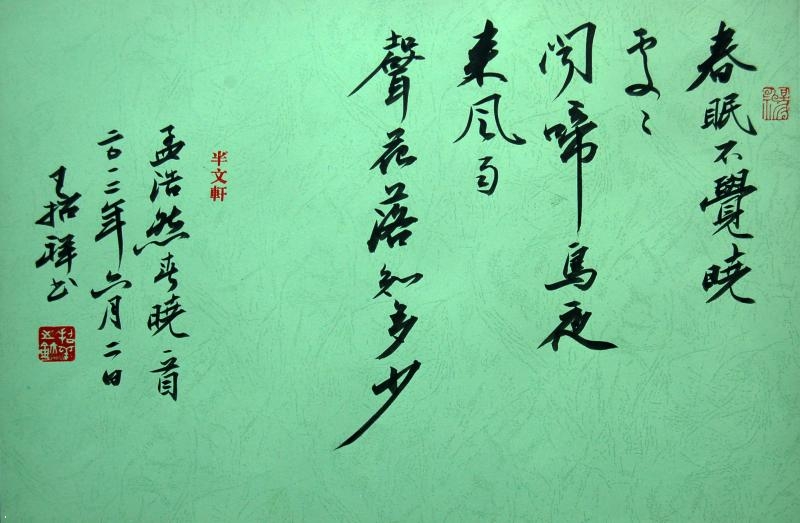 春眠不覺曉
處〻
聞啼鳥夜
来風雨
聲花落知多少
半文軒
孟浩然春曉一首
二〇一二年六月二日
王招祥书